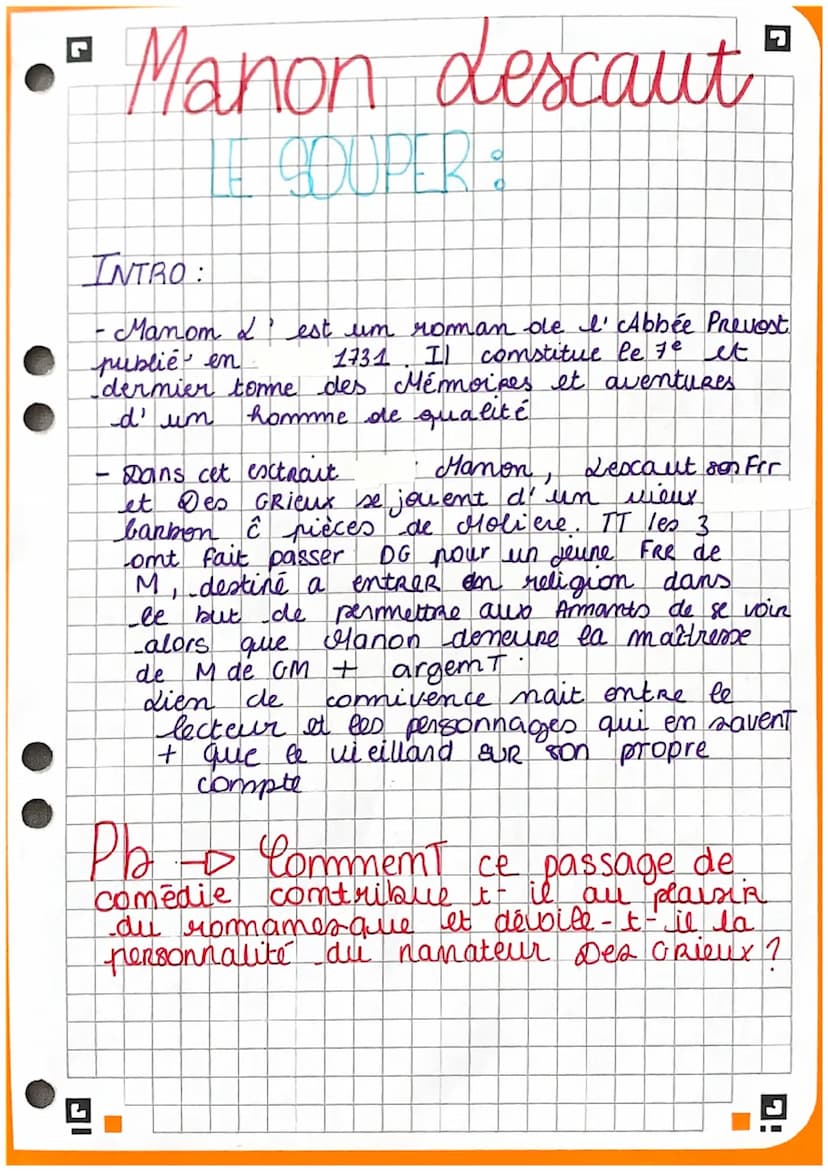 Manon Lescaut
LE SOUPER :
INTRO :
- Manon L' est un roman de l'Abbée Prevost
publié en 1731. Il constitue le 7e et
dernier tome des Mémoires et aventures
d'un homme de qualité
- Dans cet extrait Manon, Lescaut son Frr
et Des GRieux se jouent d'un vieux
barbon ĉ pièces de Moliere. TT les 3
ont fait passer DG pour un jeune FRR de
M, destiné a entRER en religion dans
le but de permettre aux Amants de se voir
alors que Manon demeure la maîtresse
de M de GM + argent.
Lien de connivence nait entre le
lecteur et les personnages qui en savent
+ que le vieillard sur son propre
compte
Pb → Comment ce passage de
comédie contribue t-il au plaisir
du romanesque et dévoile-t-il la
personnalité du narrateur Des Grieux ?